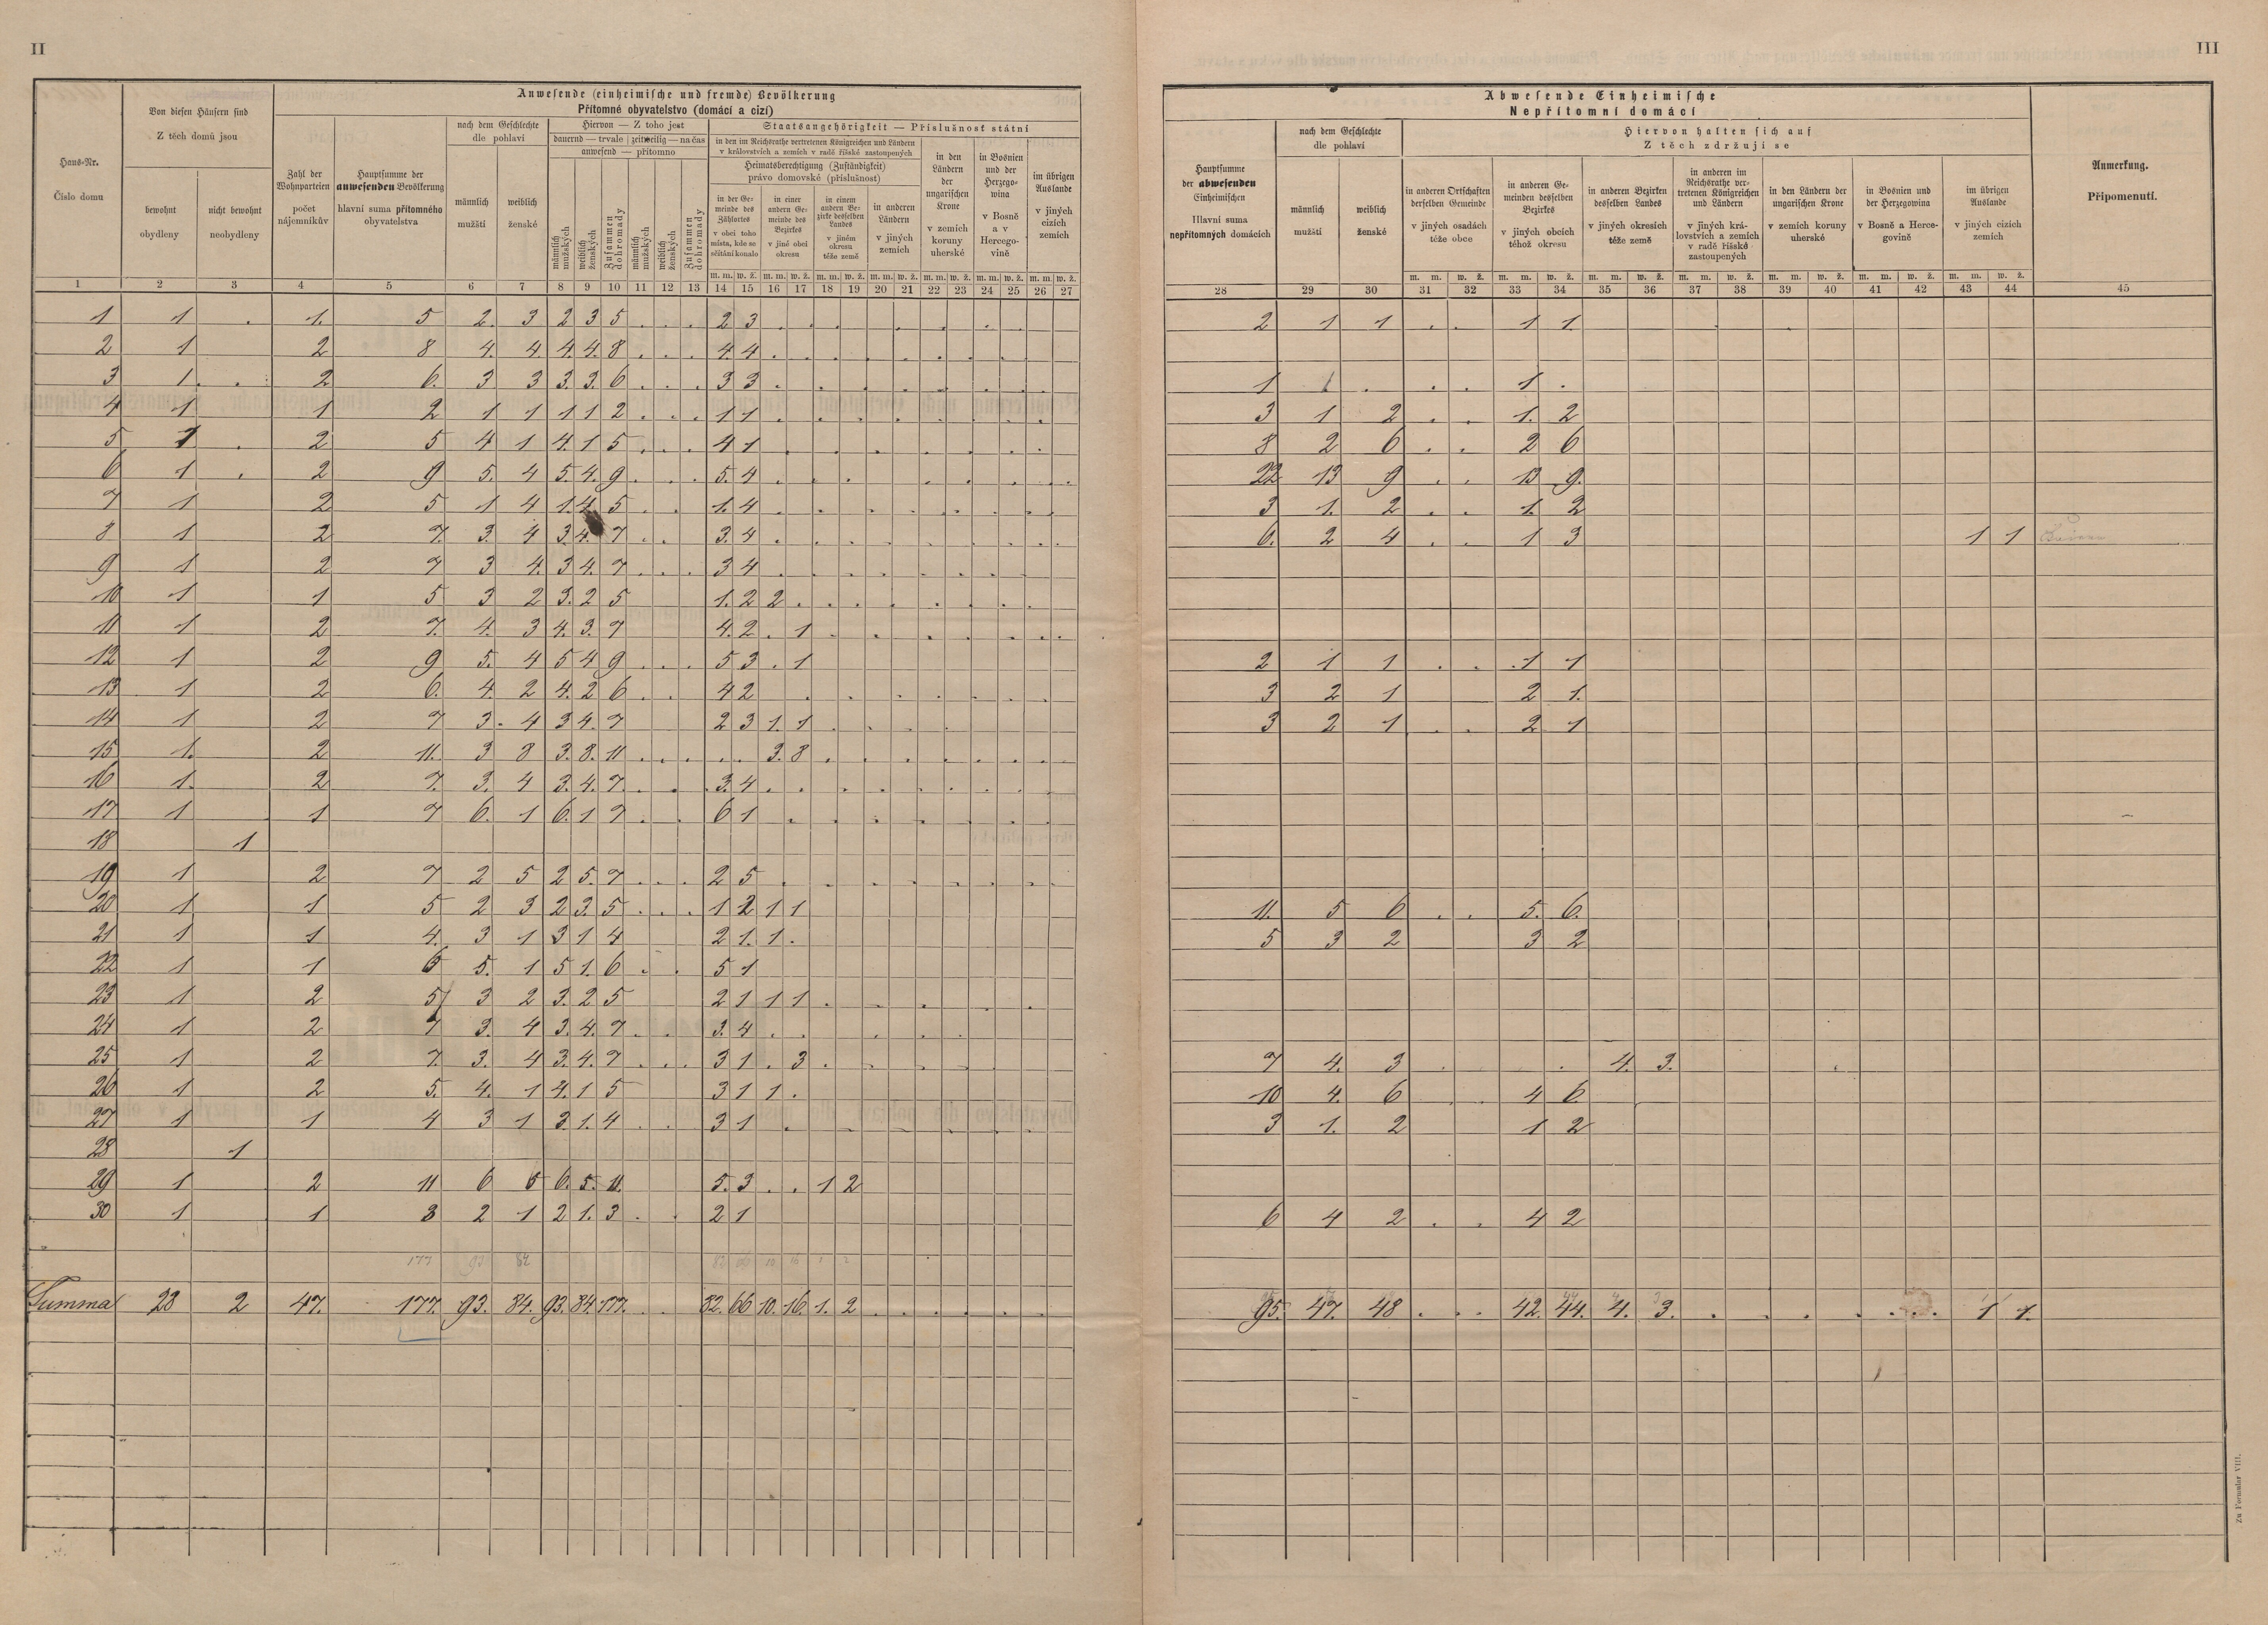 II
III
Haus-Nr.
Číslo domu
Von diesen Häusern sind
Z těch domů jsou
bewohnt
obydleny
nicht bewohnt
neobydleny
Anwesende (einheimische und fremde) Bevölkerung
Přítomné obyvatelstvo (domácí a cizí)
Zahl der Wohnparteien
počet nájemníkův
Hauptsumme der anwesenden Bevölkerung
hlavní suma přítomného obyvatelstva
nach dem Geschlechte
dle pohlaví
männlich
mužští
weiblich
ženské
Hiervon — Z toho jest
dauernd — trvale | zeitweilig — na čas
anwesend — přítomno
männlich mužských
weiblich ženských
Zusammen dohromady
männlich mužských
weiblich ženských
Zusammen dohromady
Staatsangehörigkeit — Příslušnost státní
in den im Reichsrathe vertretenen Königreichen und Ländern
v královstvích a zemích v radě říšské zastoupených
Heimatsberechtigung (Zuständigkeit)
právo domovské (příslušnost)
in der Gemeinde des Zählortes
v obci toho místa, kde se sčítání konalo
in einer andern Gemeinde des Bezirkes
v jiné obci okresu
in einem andern Bezirke desselben Landes
v jiném okresu téže země
in anderen Ländern
v jiných zemích
in den Ländern der ungarischen Krone
v zemích koruny uherské
in Bosnien und der Herzegowina
v Bosně a v Hercegovině
im übrigen Auslande
v jiných cizích zemích
m. m. w. ž. m. m. w. ž. m. m. w. ž. m. m. w. ž. m. m. w. ž. m. m. w. ž. m. m. w. ž.
1 2 3 4 5 6 7 8 9 10 11 12 13 14 15 16 17 18 19 20 21 22 23 24 25 26 27
Abwesende Einheimische
Nepřítomní domácí
Hauptsumme der abwesenden Einheimischen
Hlavní suma nepřítomných domácích
nach dem Geschlechte
dle pohlaví
männlich
mužští
weiblich
ženské
Hiervon halten sich auf
Z těch zdržují se
in anderen Ortschaften derselben Gemeinde
v jiných osadách téže obce
in anderen Gemeinden desselben Bezirkes
v jiných obcích téhož okresu
in anderen Bezirken desselben Landes
v jiných okresích téže země
in anderen im Reichsrathe vertretenen Königreichen und Ländern
v jiných královstvích a zemích v radě říšské zastoupených
in den Ländern der ungarischen Krone
v zemích koruny uherské
in Bosnien und der Herzegowina
v Bosně a Hercegovině
im übrigen Auslande
v jiných cizích zemích
Anmerkung.
Připomenutí.
m. m. w. ž. m. m. w. ž. m. m. w. ž. m. m. w. ž. m. m. w. ž. m. m. w. ž. m. m. w. ž.
28 29 30 31 32 33 34 35 36 37 38 39 40 41 42 43 44 45
1 1 . 1. 5 2. 3 2 3 5 . . . 2 3 2 1 1 . . 1 1
2 1 2 8 4. 4. 4. 4. 8 . . . 4. 4
3 1. . 2 6. 3 3 3. 3. 6 . . . 3 3 1 1 . . . 1 .
4 1 1 2 1 1 1 1 2 . . . 1 1 3 1 2 . . 1. 2
5 1 . 2 5 4 1 4. 1 5 . . . 4 1 8 2 6 . . 2 6
6 1 . 2 9 5. 4 5. 4. 9 . . . 5. 4 22 13 9 . . 13 9.
7 1 2 5 1 4 1. 4. 5 . . 1. 4 3 1. 2 . . 1. 2
8 1 2 7. 3. 4 3. 4. 7 . . 3. 4 6. 2 4 . . 1 3 1 1
9 1 2 7 3 4. 3 4. 7 . . . 3 4
10 1 1 5 3 2 3. 2 5 1. 2 2
11 1 2 7. 4. 3 4. 3. 7 4. 2 . 1
12 1 2 9 5. 4 5 4 9 . . . 5 3 . 1 2 1 1 . . 1 1
13 1 2 6. 4. 2 4. 2 6 . . 4 2 3 2 1 2 1.
14 1 2 7 3. 4 3 4. 7 2 3 1. 1 3 2 1 . . 2 1
15 1. 2 11. 3 8 3. 8. 11 . . . . . 3. 8
16 1. 2 7. 3. 4 3. 4. 7. . . 3. 4
17 1 1 7 6. 1 6. 1 7 . . 6 1
18 1
19 1 2 7 2 5 2 5. 7 . . . 2 5
20 1 1 5 2 3 2 3. 5 . . . 1 2 1 1 11. 5 6 . . 5. 6.
21 1 1 4. 3 1 3 1 4 2 1. 1 . 5 3 2 3 2
22 1 1 6 5. 1 5 1. 6 . . 5 1
23 1 2 5 3 2 3. 2 5 2 1 1 1
24 1 2 7 3. 4 3. 4. 7 . . 3. 4
25 1 2 7. 3. 4 3. 4. 7 . . . 3 1 . 3 7 4. 3 4. 3.
26 1 2 5. 4. 1 4. 1 5 3 1 1 . 10 4. 6 4 6
27 1 1 4 3 1 3. 1. 4 . . 3 1 3 1. 2 1 2
28 1
29 1 2 11 6 5 6. 5. 11. 5. 3 . . 1 2
30 1 1 3 2 1 2 1. 3 . . 2 1 6 4 2 . . 4 2
177 93 84 82 66 10 16 1 2
Summa 28 2 47. 177. 93. 84. 93. 84 177. . . 82. 66 10. 16. 1. 2 95. 47. 48 . . . 42. 44. 4. 3. 1 1.
Zu Formular VIII.